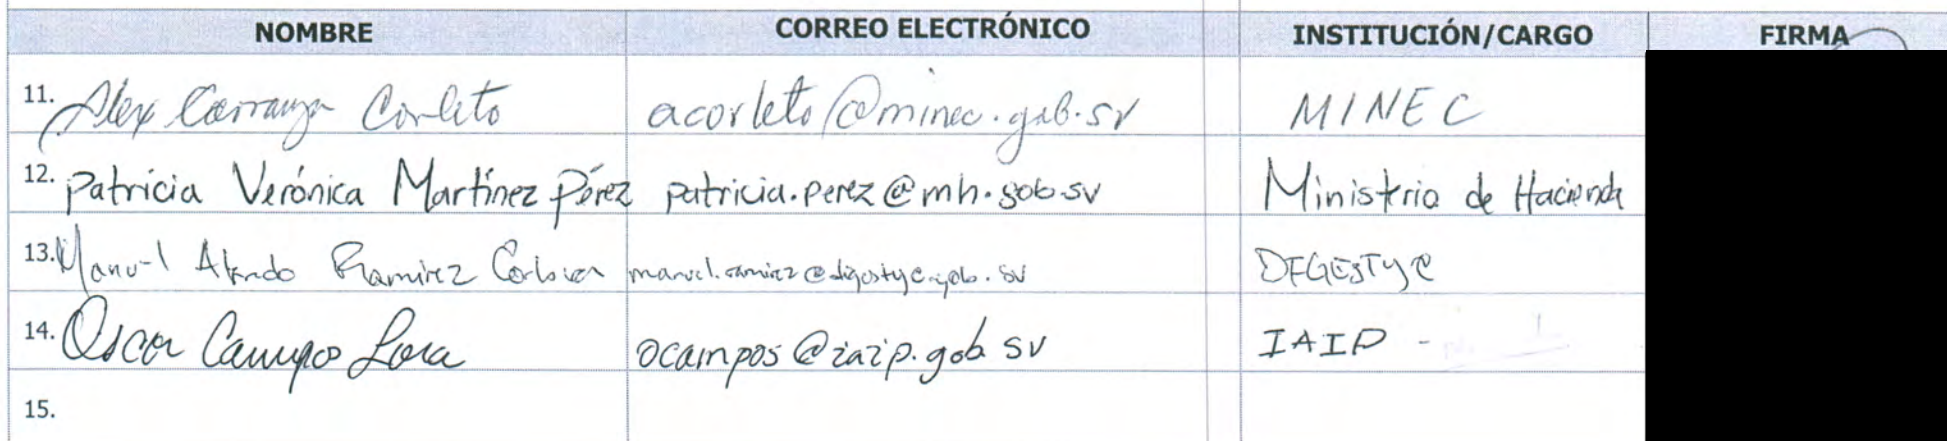 NOMBRE CORREO ELECTRÓNICO INSTITUCIÓN/CARGO FIRMA
11. Alex Carranza Corleto acorleto@minec.gob.sv MINEC
12. Patricia Verónica Martínez Pérez patricia.perez@mh.gob.sv Ministerio de Hacienda
13. Manuel Ramirez manuel.ramirez@digestyc.gob.sv DIGESTYC
14. Oscar Campos Lara ocampos@iaip.gob.sv IAIP -
15.